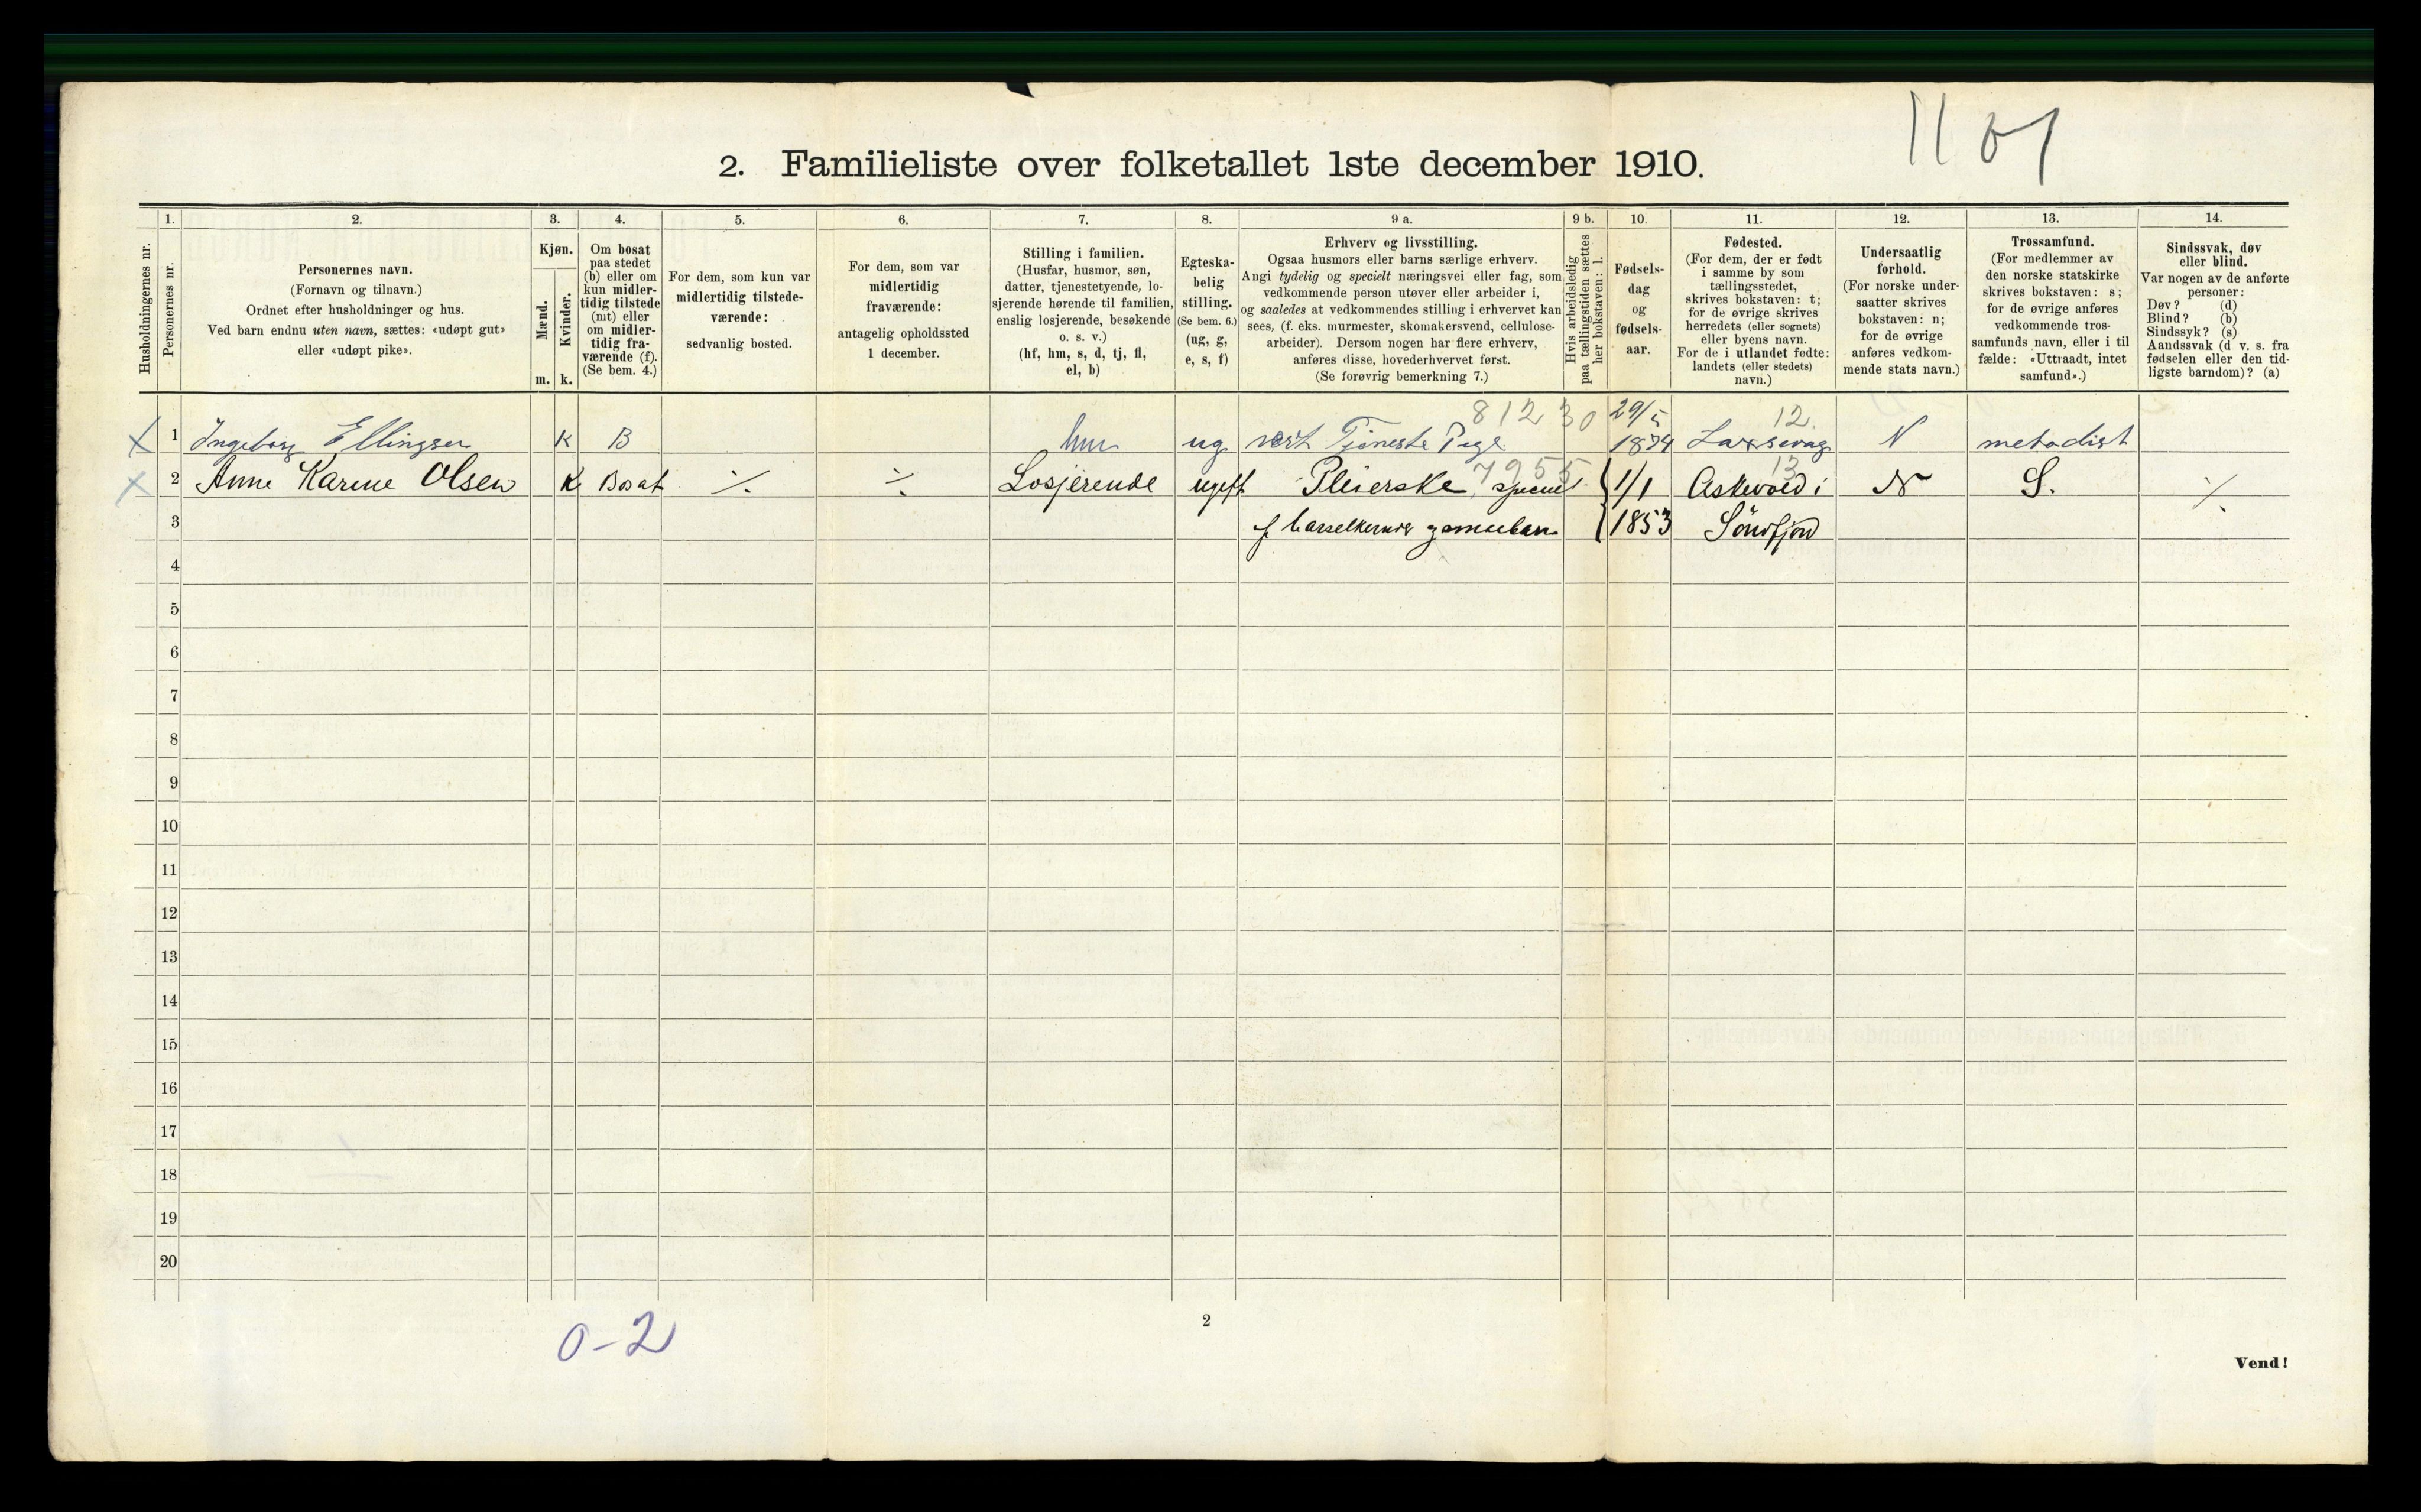 11 07
2. Familieliste over folketallet 1ste december 1910.
Husholdningernes nr.
1.
Personernes nr.
2.
Personernes navn.
(Fornavn og tilnavn.)
Ordnet efter husholdninger og hus.
Ved barn endnu uten navn, sættes: «udøpt gut»
eller «udøpt pike».
3.
Kjøn.
Mænd.
Kvinder.
m. k.
4.
Om bosat
paa stedet
(b) eller om
kun midler-
tidig tilstede
(mt) eller
om midler-
tidig fra-
værende (f).
(Se bem. 4.)
5.
For dem, som kun var
midlertidig tilstede-
værende:
sedvanlig bosted.
6.
For dem, som var
midlertidig
fraværende:
antagelig opholdssted
1 december.
7.
Stilling i familien.
(Husfar, husmor, søn,
datter, tjenestetyende, lo-
sjerende hørende til familien,
enslig losjerende, besøkende
o. s. v.)
(hf, hm, s, d, tj, fl,
el, b)
8.
Egteska-
belig
stilling.
(Se bem. 6.)
(ug, g,
e, s, f)
9 a.
Erhverv og livsstilling.
Ogsaa husmors eller barns særlige erhverv.
Angi tydelig og specielt næringsvei eller fag, som
vedkommende person utøver eller arbeider i,
og saaledes at vedkommendes stilling i erhvervet kan
sees, (f. eks. murmester, skomakersvend, cellulose-
arbeider). Dersom nogen har flere erhverv,
anføres disse, hovederhvervet først.
(Se forøvrig bemerkning 7.)
9 b.
Hvis arbeidsledig
paa tællingstiden sættes
her bokstaven: l.
10.
Fødsels-
dag
og
fødsels-
aar.
11.
Fødested.
(For dem, der er født
i samme by som
tællingsstedet,
skrives bokstaven: t;
for de øvrige skrives
herredets (eller sognets)
eller byens navn.
For de i utlandet fødte:
landets (eller stedets)
navn.)
12.
Undersaatlig
forhold.
(For norske under-
saatter skrives
bokstaven: n;
for de øvrige
anføres vedkom-
mende stats navn.)
13.
Trossamfund.
(For medlemmer av
den norske statskirke
skrives bokstaven: s;
for de øvrige anføres
vedkommende tros-
samfunds navn, eller i til
fælde: «Uttraadt, intet
samfund».)
14.
Sindssvak, døv
eller blind.
Var nogen av de anførte
personer:
Døv? (d)
Blind? (b)
Sindssyk? (s)
Aandssvak (d v. s. fra
fødselen eller den tid-
ligste barndom)? (a)
812 30 29/5 12.
X 1 Ingeborg Ellingsen K B hm ug Tjeneste Pige 1874 Laxsevag N metodist
7955 13
X 2 Anne Karine Olsen K Bosat ./. ./. Losjerende ugeft Pleierske 1/1 Askevold i N S. ./.
3 f barselkvinder 1853 Söndfjord
4
5
6
7
8
9
10
11
12
13
14
15
16
17
18
19
20
0-2
2
Vend!